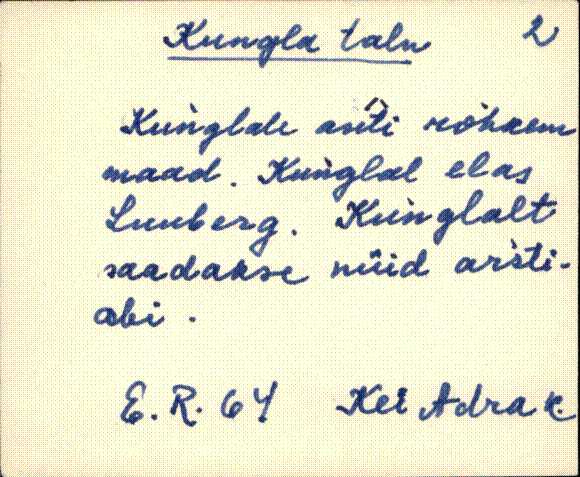 Kungla talu 2
Kun̄glale an̄ti rohkem
maad. Kun̄glal elas
Luuberg. Kun̄glalt
saadakse nüid arsti-
abi.
E. R. 64 Kei Adra k.